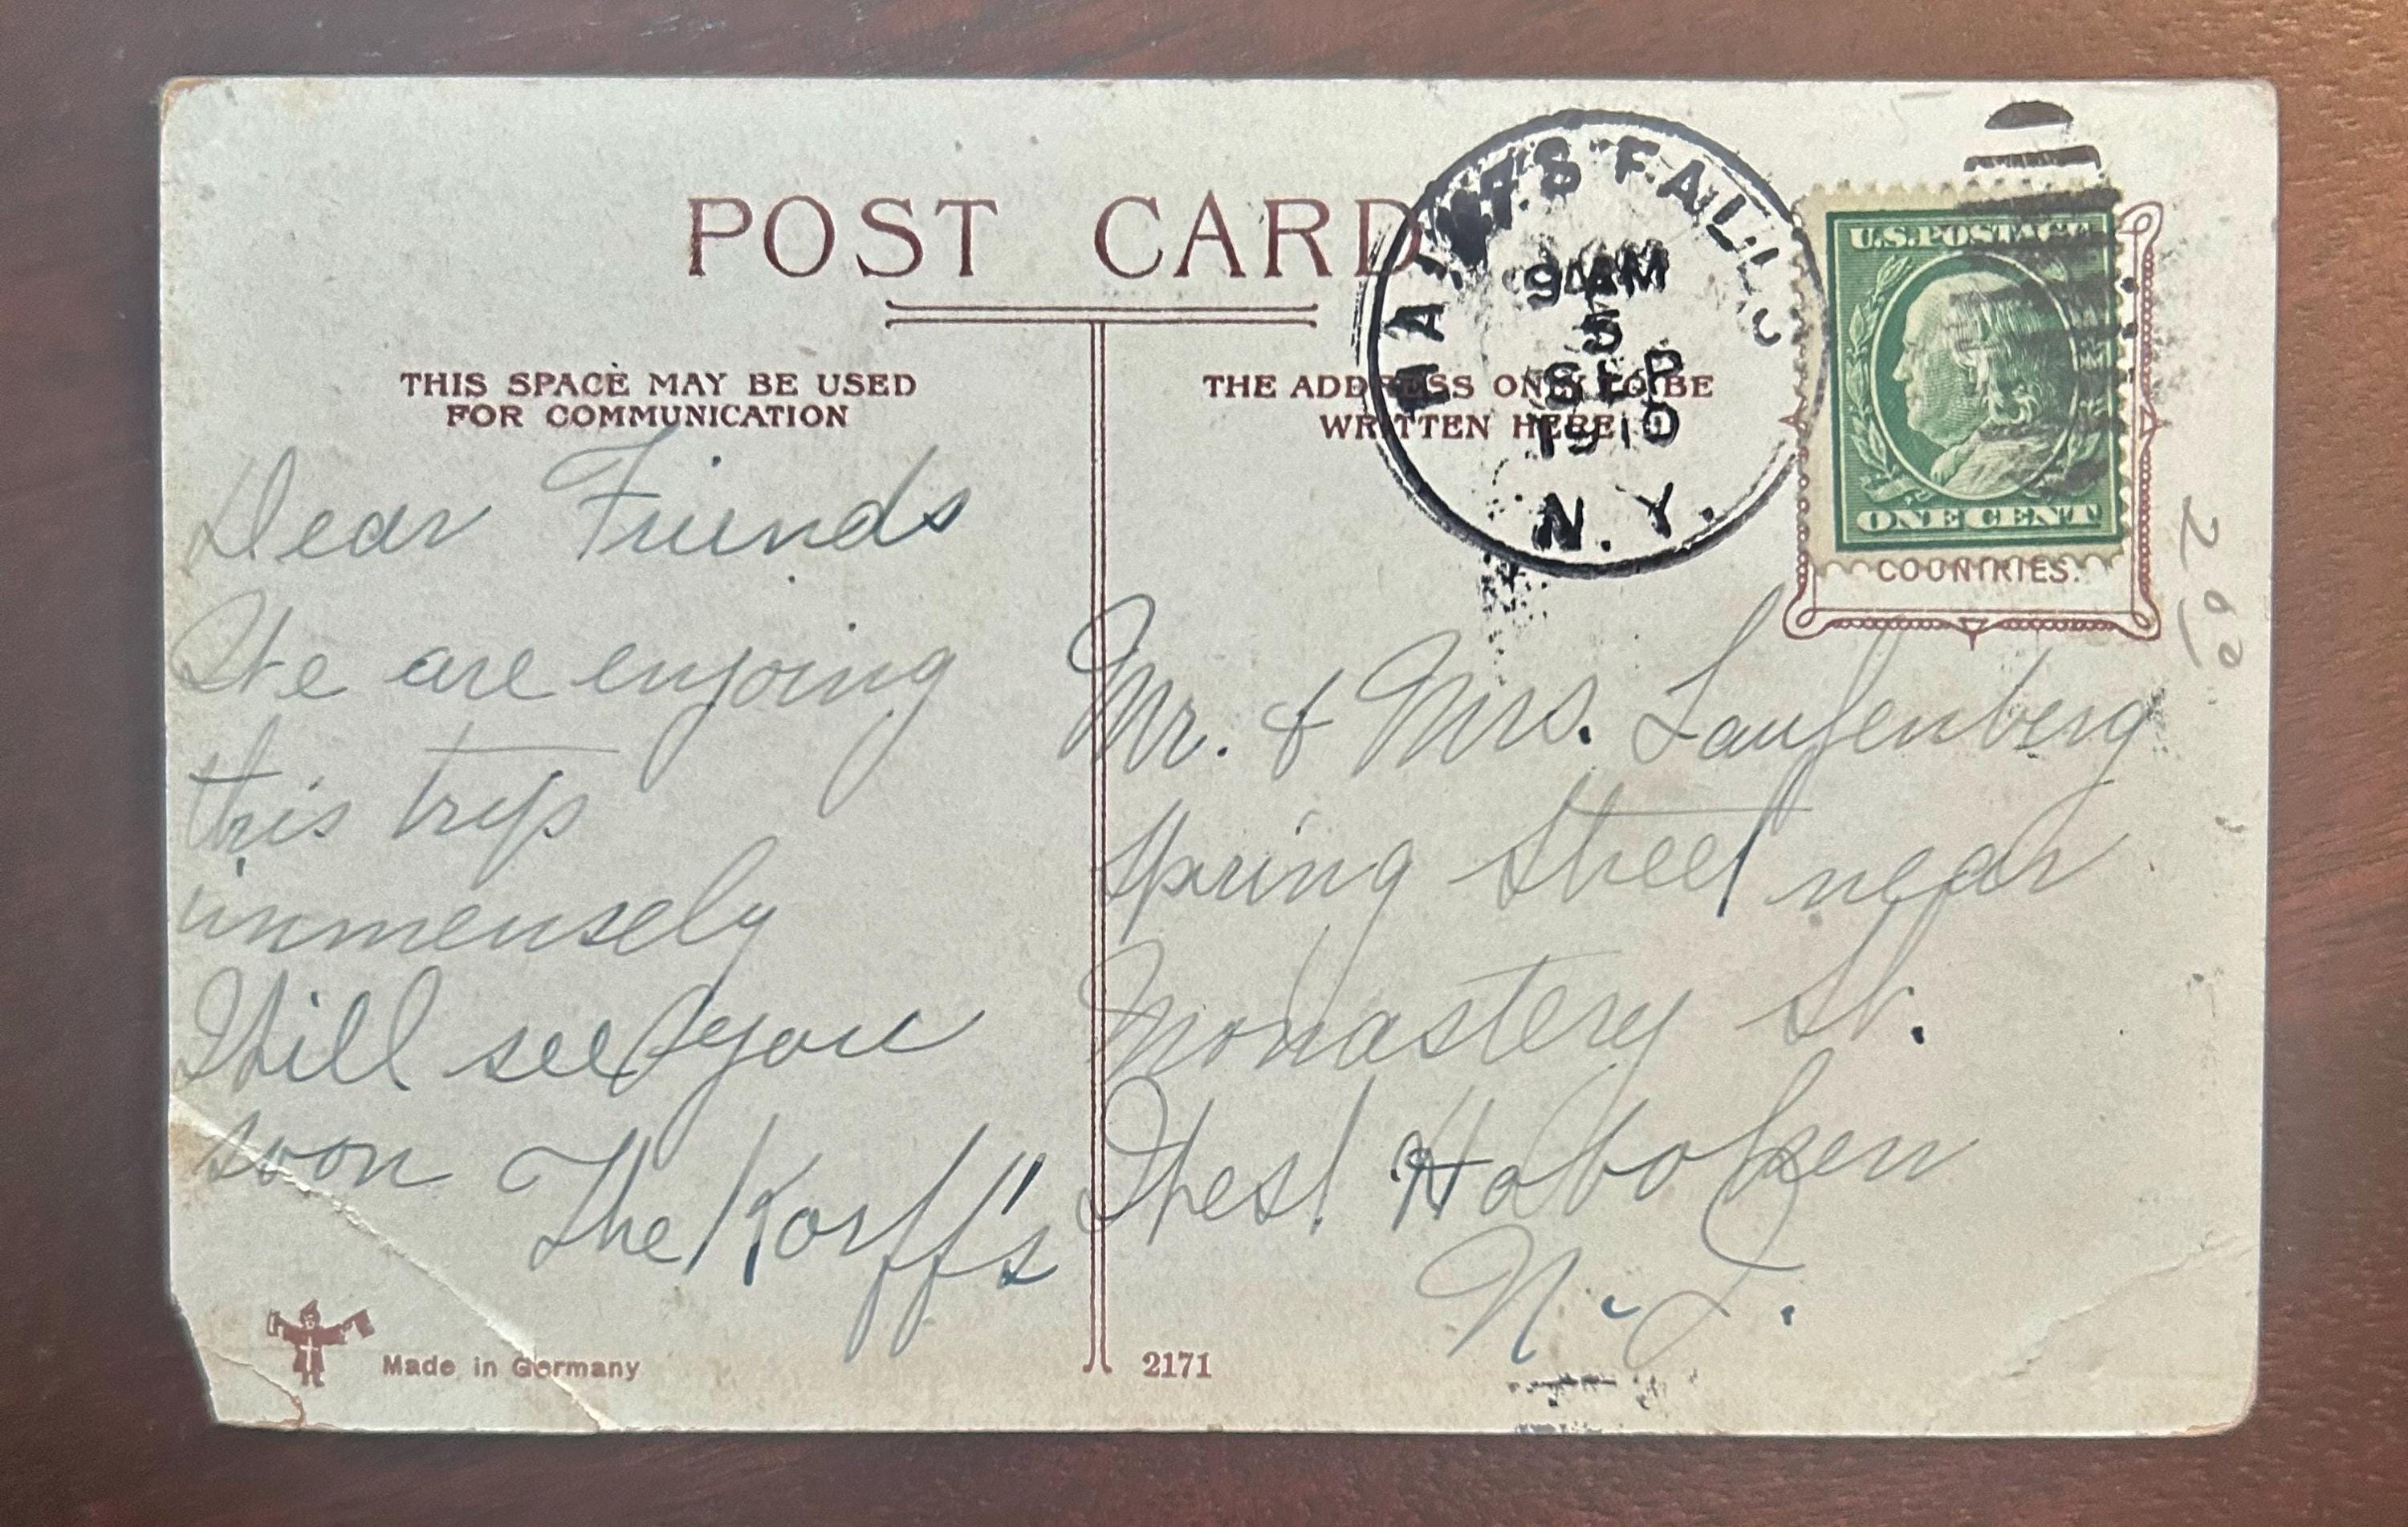 POST CARD
THIS SPACE MAY BE USED
FOR COMMUNICATION
Dear Friends
We are enjoing
this trip
immensely
Will see you
soon
The Korff's
Made in Germany
2171
THE ADDRESS ONLY TO BE
WRITTEN HERE
FALLS
9 AM
5
SEP
1910
N.Y.
U.S. POSTAGE
ONE CENT
COUNTRIES.
Mr. & Mrs. Laufenberg
Spring Street near
Monastery St.
West Hoboken
N.J.